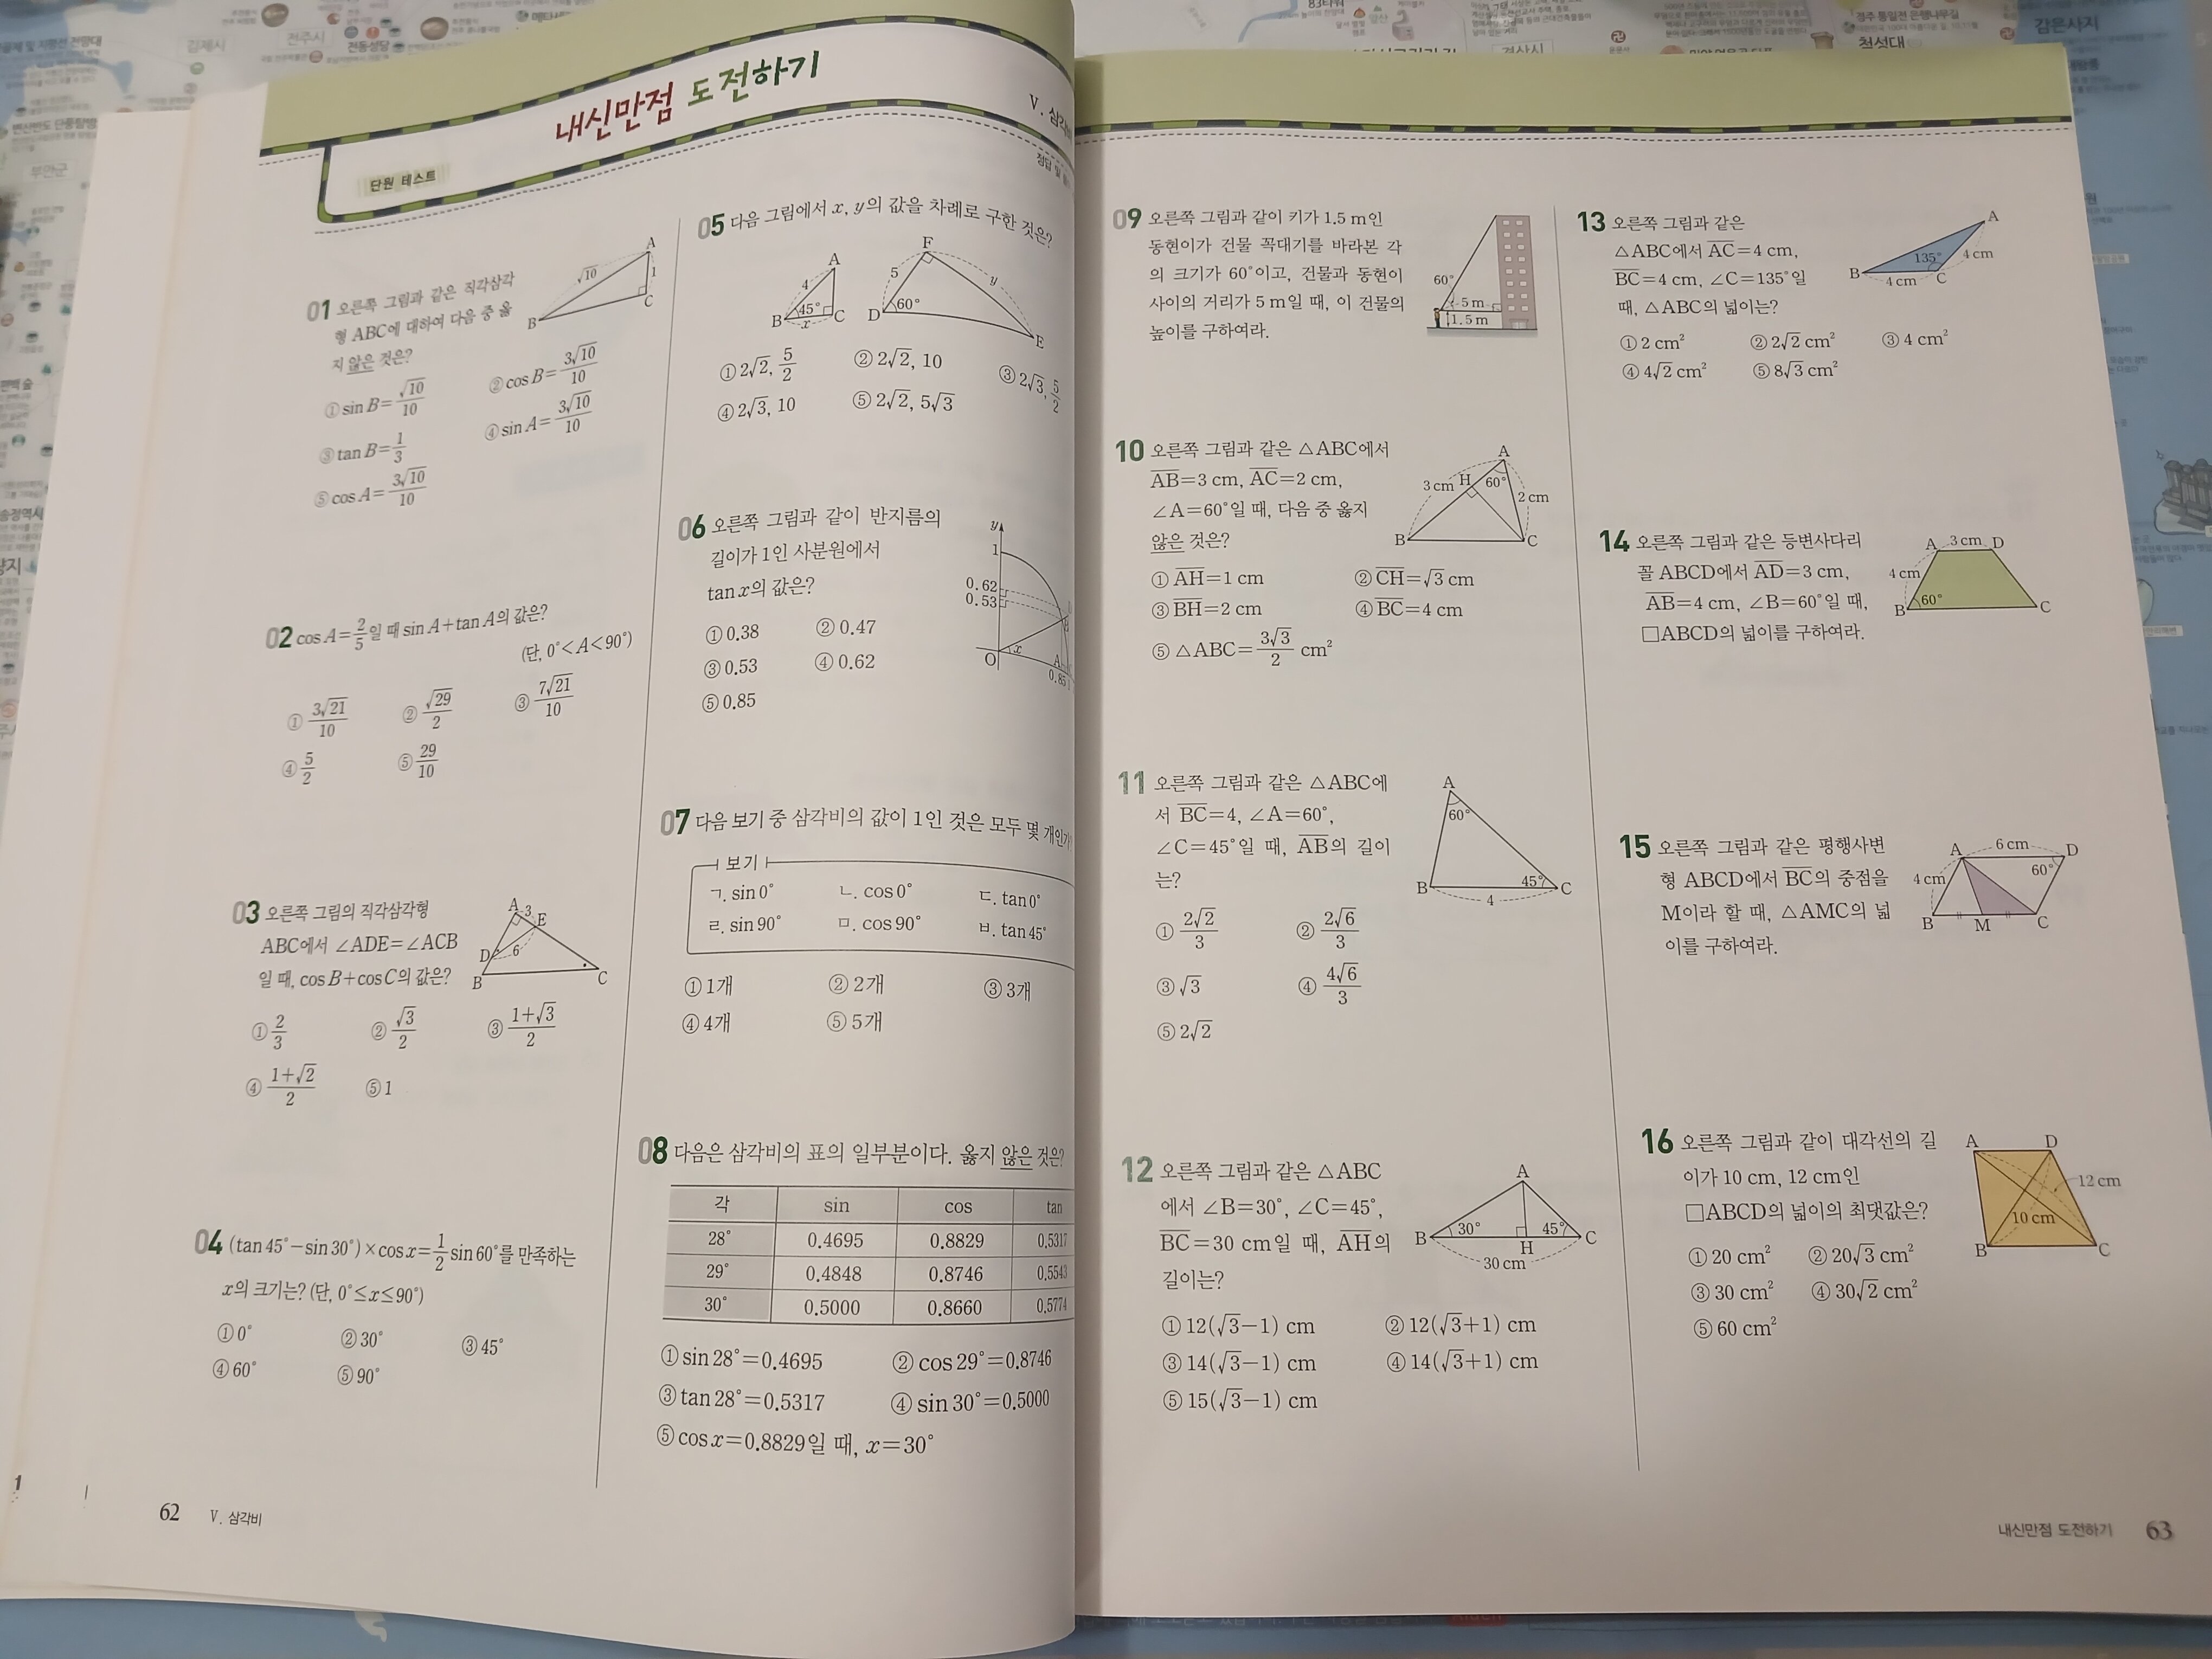 내신만점 도전하기
단원 테스트
01 오른쪽 그림과 같은 직각삼각
형 ABC에 대하여 다음 중 옳
지 않은 것은?
A
√10
1
B
C
① sin B=√10/10
② cos B=3√10/10
③ tan B=1/3
④ sin A=3√10/10
⑤ cos A=3√10/10
02 cos A=2/5일 때 sin A+tan A의 값은?
(단, 0°<A<90°)
① 3√21/10
② √29/2
③ 7√21/10
④ 5/2
⑤ 29/10
03 오른쪽 그림의 직각삼각형
ABC에서 ∠ADE=∠ACB
일 때, cos B+cos C의 값은?
A 3 E
D 6
B C
① 2/3
② √3/2
③ 1+√3/2
④ 1+√2/2
⑤ 1
04 (tan 45°-sin 30°)×cos x=1/2 sin 60°를 만족하는
x의 크기는? (단, 0°≤x≤90°)
① 0°
② 30°
③ 45°
④ 60°
⑤ 90°
62 V. 삼각비
05 다음 그림에서 x, y의 값을 차례로 구한 것은?
A
4
45°
B x C
F
5
y
D 60°
E
① 2√2, 5/2
② 2√2, 10
③ 2√3, 5/2
④ 2√3, 10
⑤ 2√2, 5√3
06 오른쪽 그림과 같이 반지름의
길이가 1인 사분원에서
tan x의 값은?
y
1
0.62
0.53
B
O x A
0.85
① 0.38
② 0.47
③ 0.53
④ 0.62
⑤ 0.85
07 다음 보기 중 삼각비의 값이 1인 것은 모두 몇 개인가?
보기
ㄱ. sin 0°
ㄴ. cos 0°
ㄷ. tan 0°
ㄹ. sin 90°
ㅁ. cos 90°
ㅂ. tan 45°
① 1개
② 2개
③ 3개
④ 4개
⑤ 5개
08 다음은 삼각비의 표의 일부분이다. 옳지 않은 것은?
각 sin cos tan
28° 0.4695 0.8829 0.5317
29° 0.4848 0.8746 0.5543
30° 0.5000 0.8660 0.5774
① sin 28°=0.4695
② cos 29°=0.8746
③ tan 28°=0.5317
④ sin 30°=0.5000
⑤ cos x=0.8829일 때, x=30°
09 오른쪽 그림과 같이 키가 1.5 m인
동현이가 건물 꼭대기를 바라본 각
의 크기가 60°이고, 건물과 동현이
사이의 거리가 5 m일 때, 이 건물의
높이를 구하여라.
60°
5 m
1.5 m
10 오른쪽 그림과 같은 △ABC에서
AB=3 cm, AC=2 cm,
∠A=60°일 때, 다음 중 옳지
않은 것은?
A
3 cm H 60°
2 cm
B C
① AH=1 cm
② CH=√3 cm
③ BH=2 cm
④ BC=4 cm
⑤ △ABC=3√3/2 cm²
11 오른쪽 그림과 같은 △ABC에
서 BC=4, ∠A=60°,
∠C=45°일 때, AB의 길이
는?
A
60°
B 45° C
4
① 2√2/3
② 2√6/3
③ √3
④ 4√6/3
⑤ 2√2
12 오른쪽 그림과 같은 △ABC
에서 ∠B=30°, ∠C=45°,
BC=30 cm일 때, AH의
길이는?
A
B 30° 45° C
H
30 cm
① 12(√3-1) cm
② 12(√3+1) cm
③ 14(√3-1) cm
④ 14(√3+1) cm
⑤ 15(√3-1) cm
13 오른쪽 그림과 같은
△ABC에서 AC=4 cm,
BC=4 cm, ∠C=135°일
때, △ABC의 넓이는?
A
135° 4 cm
B 4 cm C
① 2 cm²
② 2√2 cm²
③ 4 cm²
④ 4√2 cm²
⑤ 8√3 cm²
14 오른쪽 그림과 같은 등변사다리
꼴 ABCD에서 AD=3 cm,
AB=4 cm, ∠B=60°일 때,
□ABCD의 넓이를 구하여라.
A 3 cm D
4 cm
B 60° C
15 오른쪽 그림과 같은 평행사변
형 ABCD에서 BC의 중점을
M이라 할 때, △AMC의 넓
이를 구하여라.
6 cm
A D
4 cm 60°
B M C
16 오른쪽 그림과 같이 대각선의 길
이가 10 cm, 12 cm인
□ABCD의 넓이의 최댓값은?
A D
12 cm
10 cm
B C
① 20 cm²
② 20√3 cm²
③ 30 cm²
④ 30√2 cm²
⑤ 60 cm²
내신만점 도전하기 63
김제시
전주시
전동성당
부안군
경산시
첨성대
감은사지